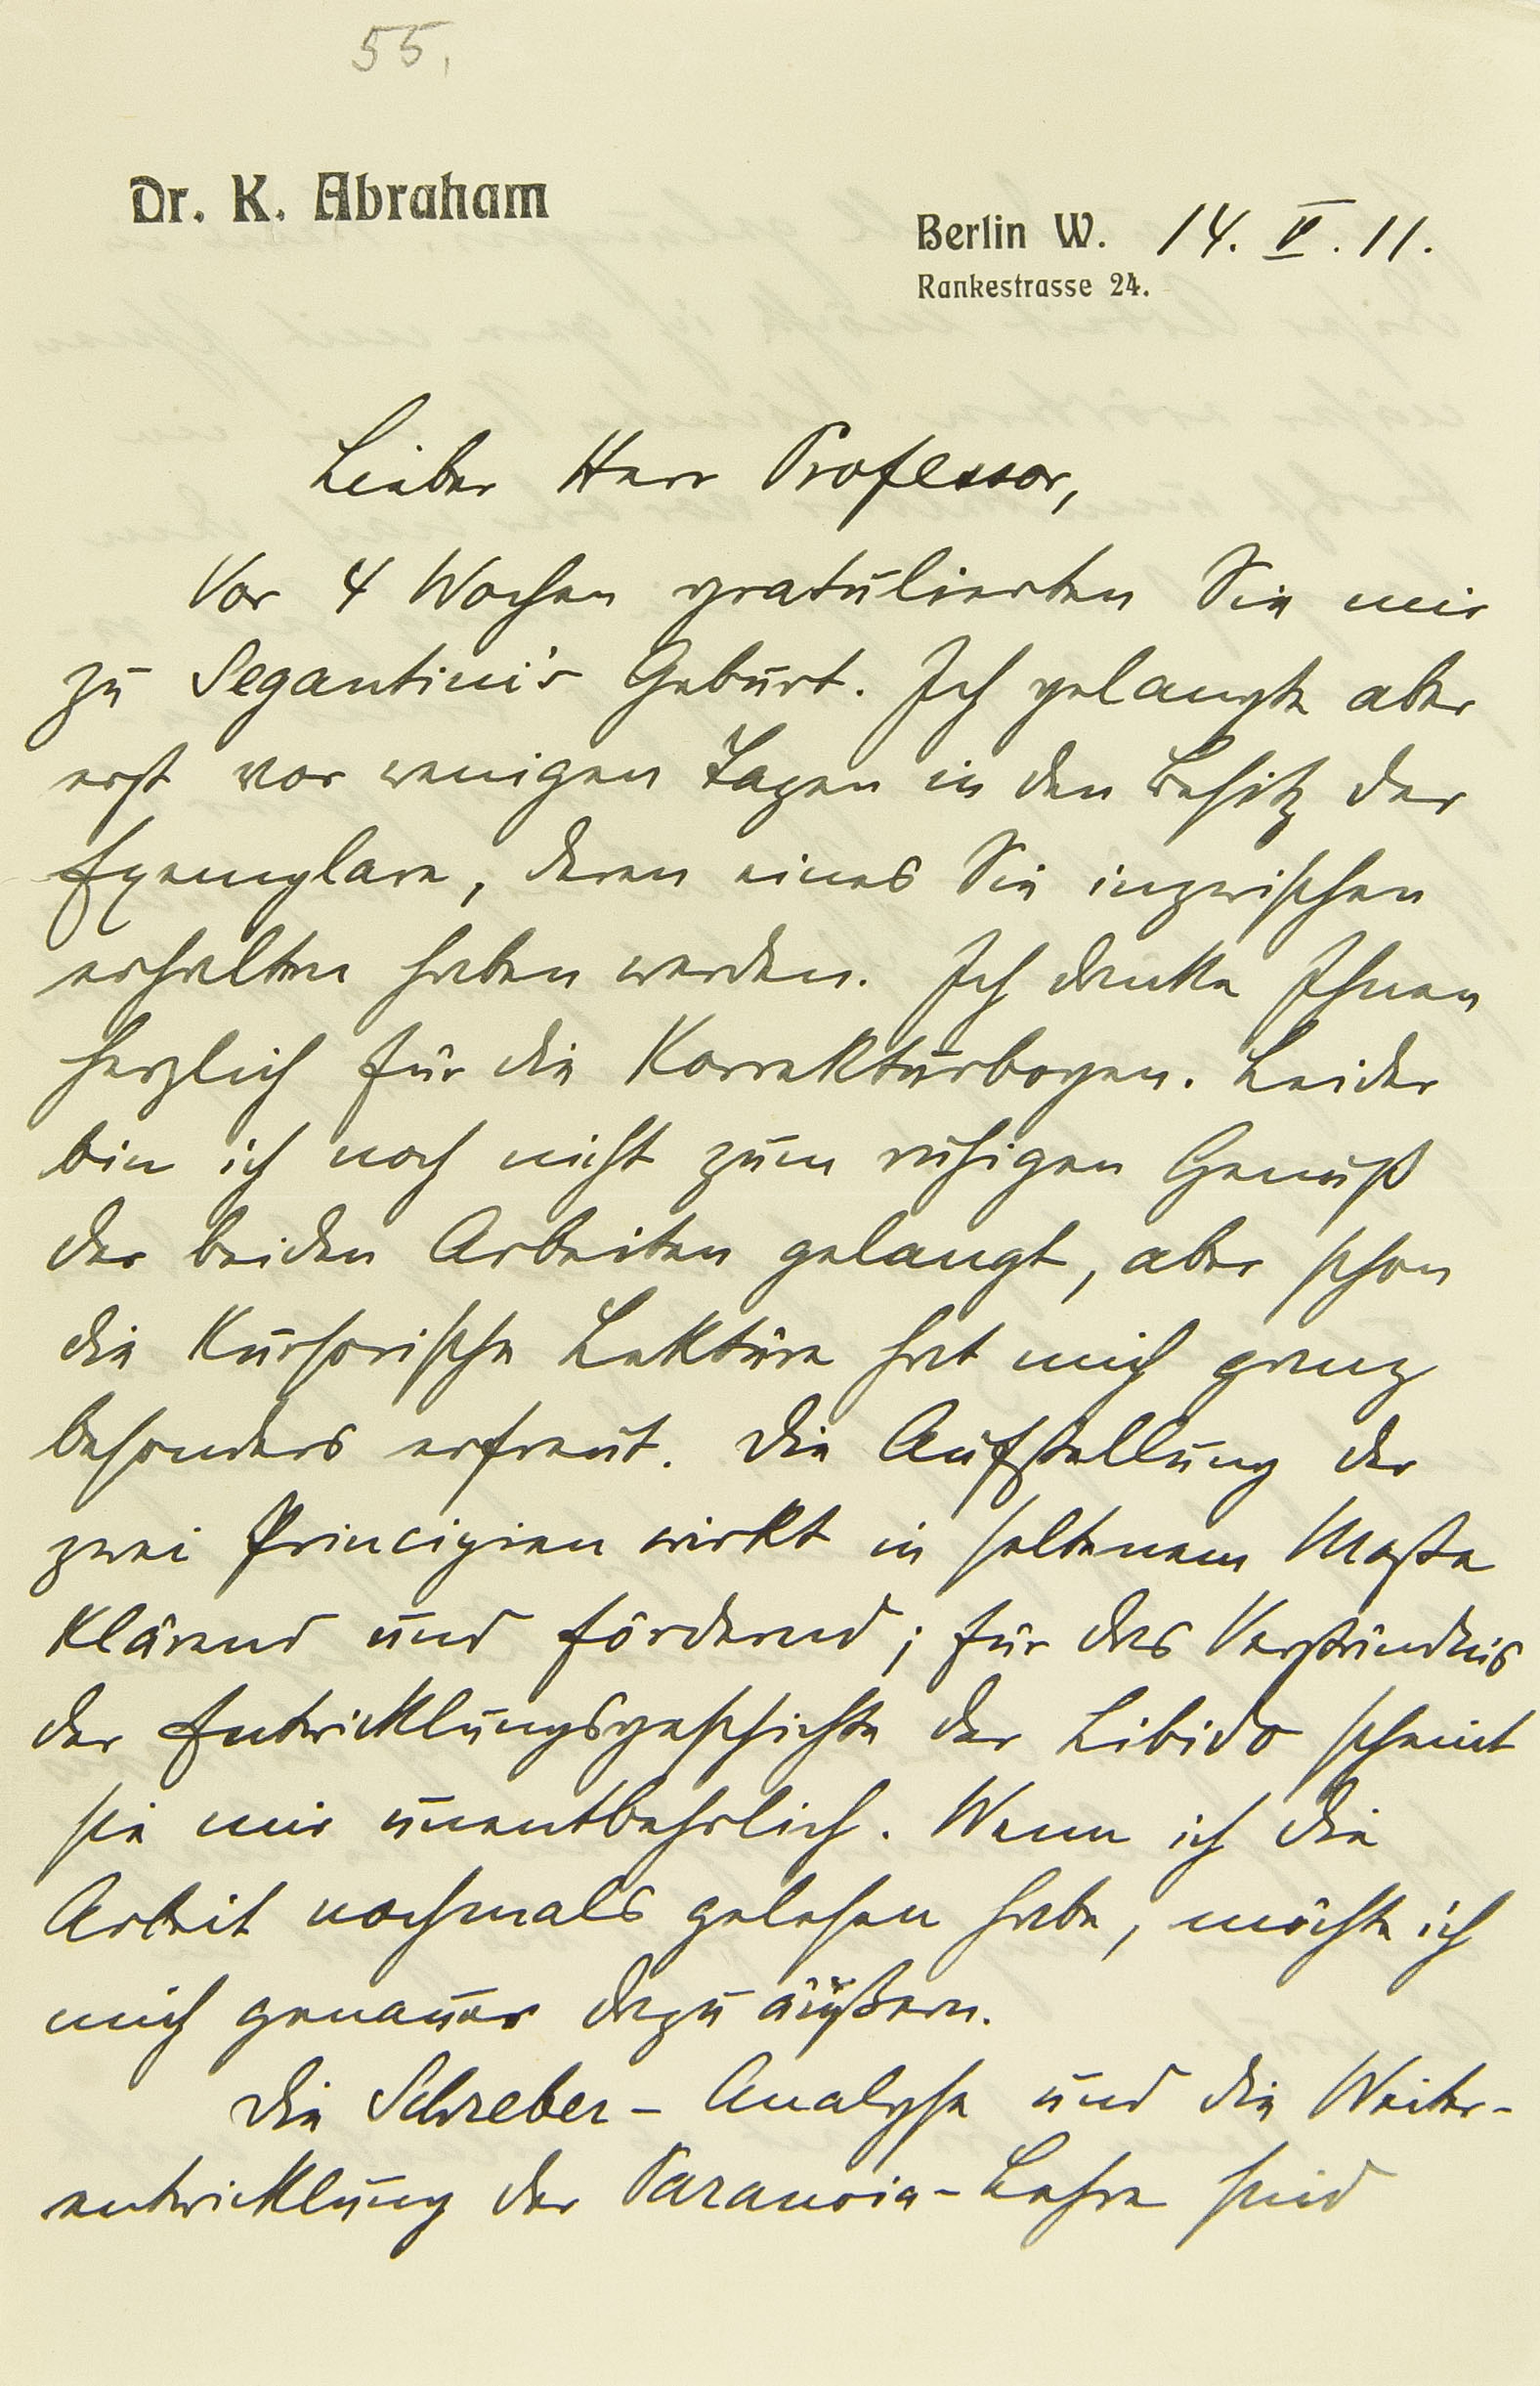 55.
Dr. K. Abraham
Berlin W. 14. V. 11.
Rankestrasse 24.
Lieber Herr Professor,
Vor 4 Wochen gratulierten Sie mir
zu Segantini's Geburt. Ich gelangte aber
erst vor wenigen Tagen in den Besitz der
Exemplare, deren eines Sie inzwischen
erhalten haben werden. Ich danke Ihnen
herzlich für die Korrekturbogen. Leider
bin ich noch nicht zum ruhigen Genuß
der beiden Arbeiten gelangt, aber schon
die kursorische Lektüre hat mich ganz
besonders erfreut. Die Aufstellung der
zwei Principien wirkt in seltenem Maße
klärend und fördernd; für das Verständnis
der Entwicklungsgeschichte der Libido scheint
sie mir unentbehrlich. Wenn ich die
Arbeit nochmals gelesen habe, möchte ich
mich genauer dazu äußern.
Die Schreber-Analyse und die Weiter-
entwicklung der Paranoia-Lehre sind